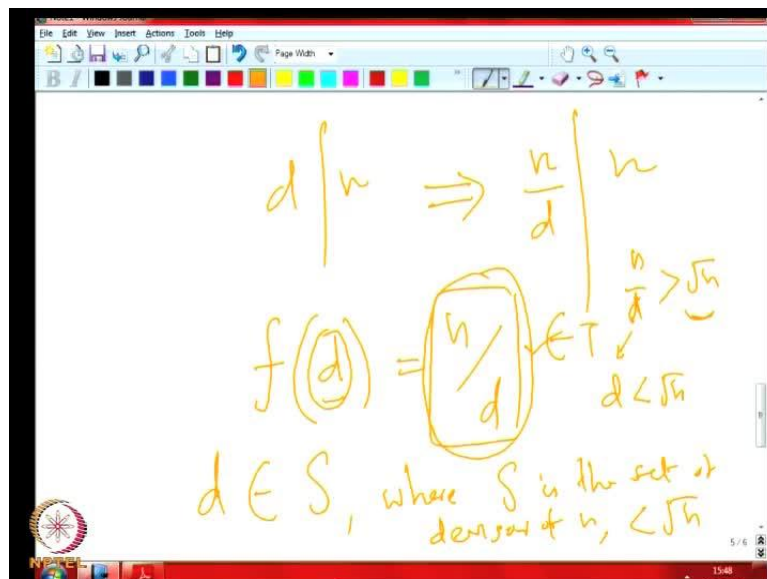 File Edit View Insert Actions Tools Help
Page Width
B I
d | n ⇒ n/d | n
n/d > √n
f(d) = n/d ∈ T
d < √n
d ∈ S, where S is the set of
divisor of n, < √n
5 / 6
NPTEL
15:48